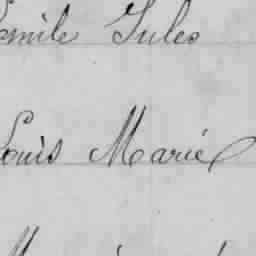 Emile Jules
Louis Marie